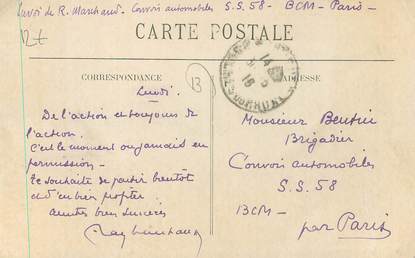 Envoi de R. Marchand - Convois automobiles S.S. 58 - BCM - Paris -
CARTE POSTALE
CORRESPONDANCE
ADRESSE
13
Lundi.
De l'action et toujours de
l'action.
C'est le moment ou jamais en
permission -
Te souhaite de partir bientôt
et d'en bien profiter.
Amitiés bien sincères
Monsieur
Brigadier
Convois automobiles
S.S. 58
BCM -
par Paris